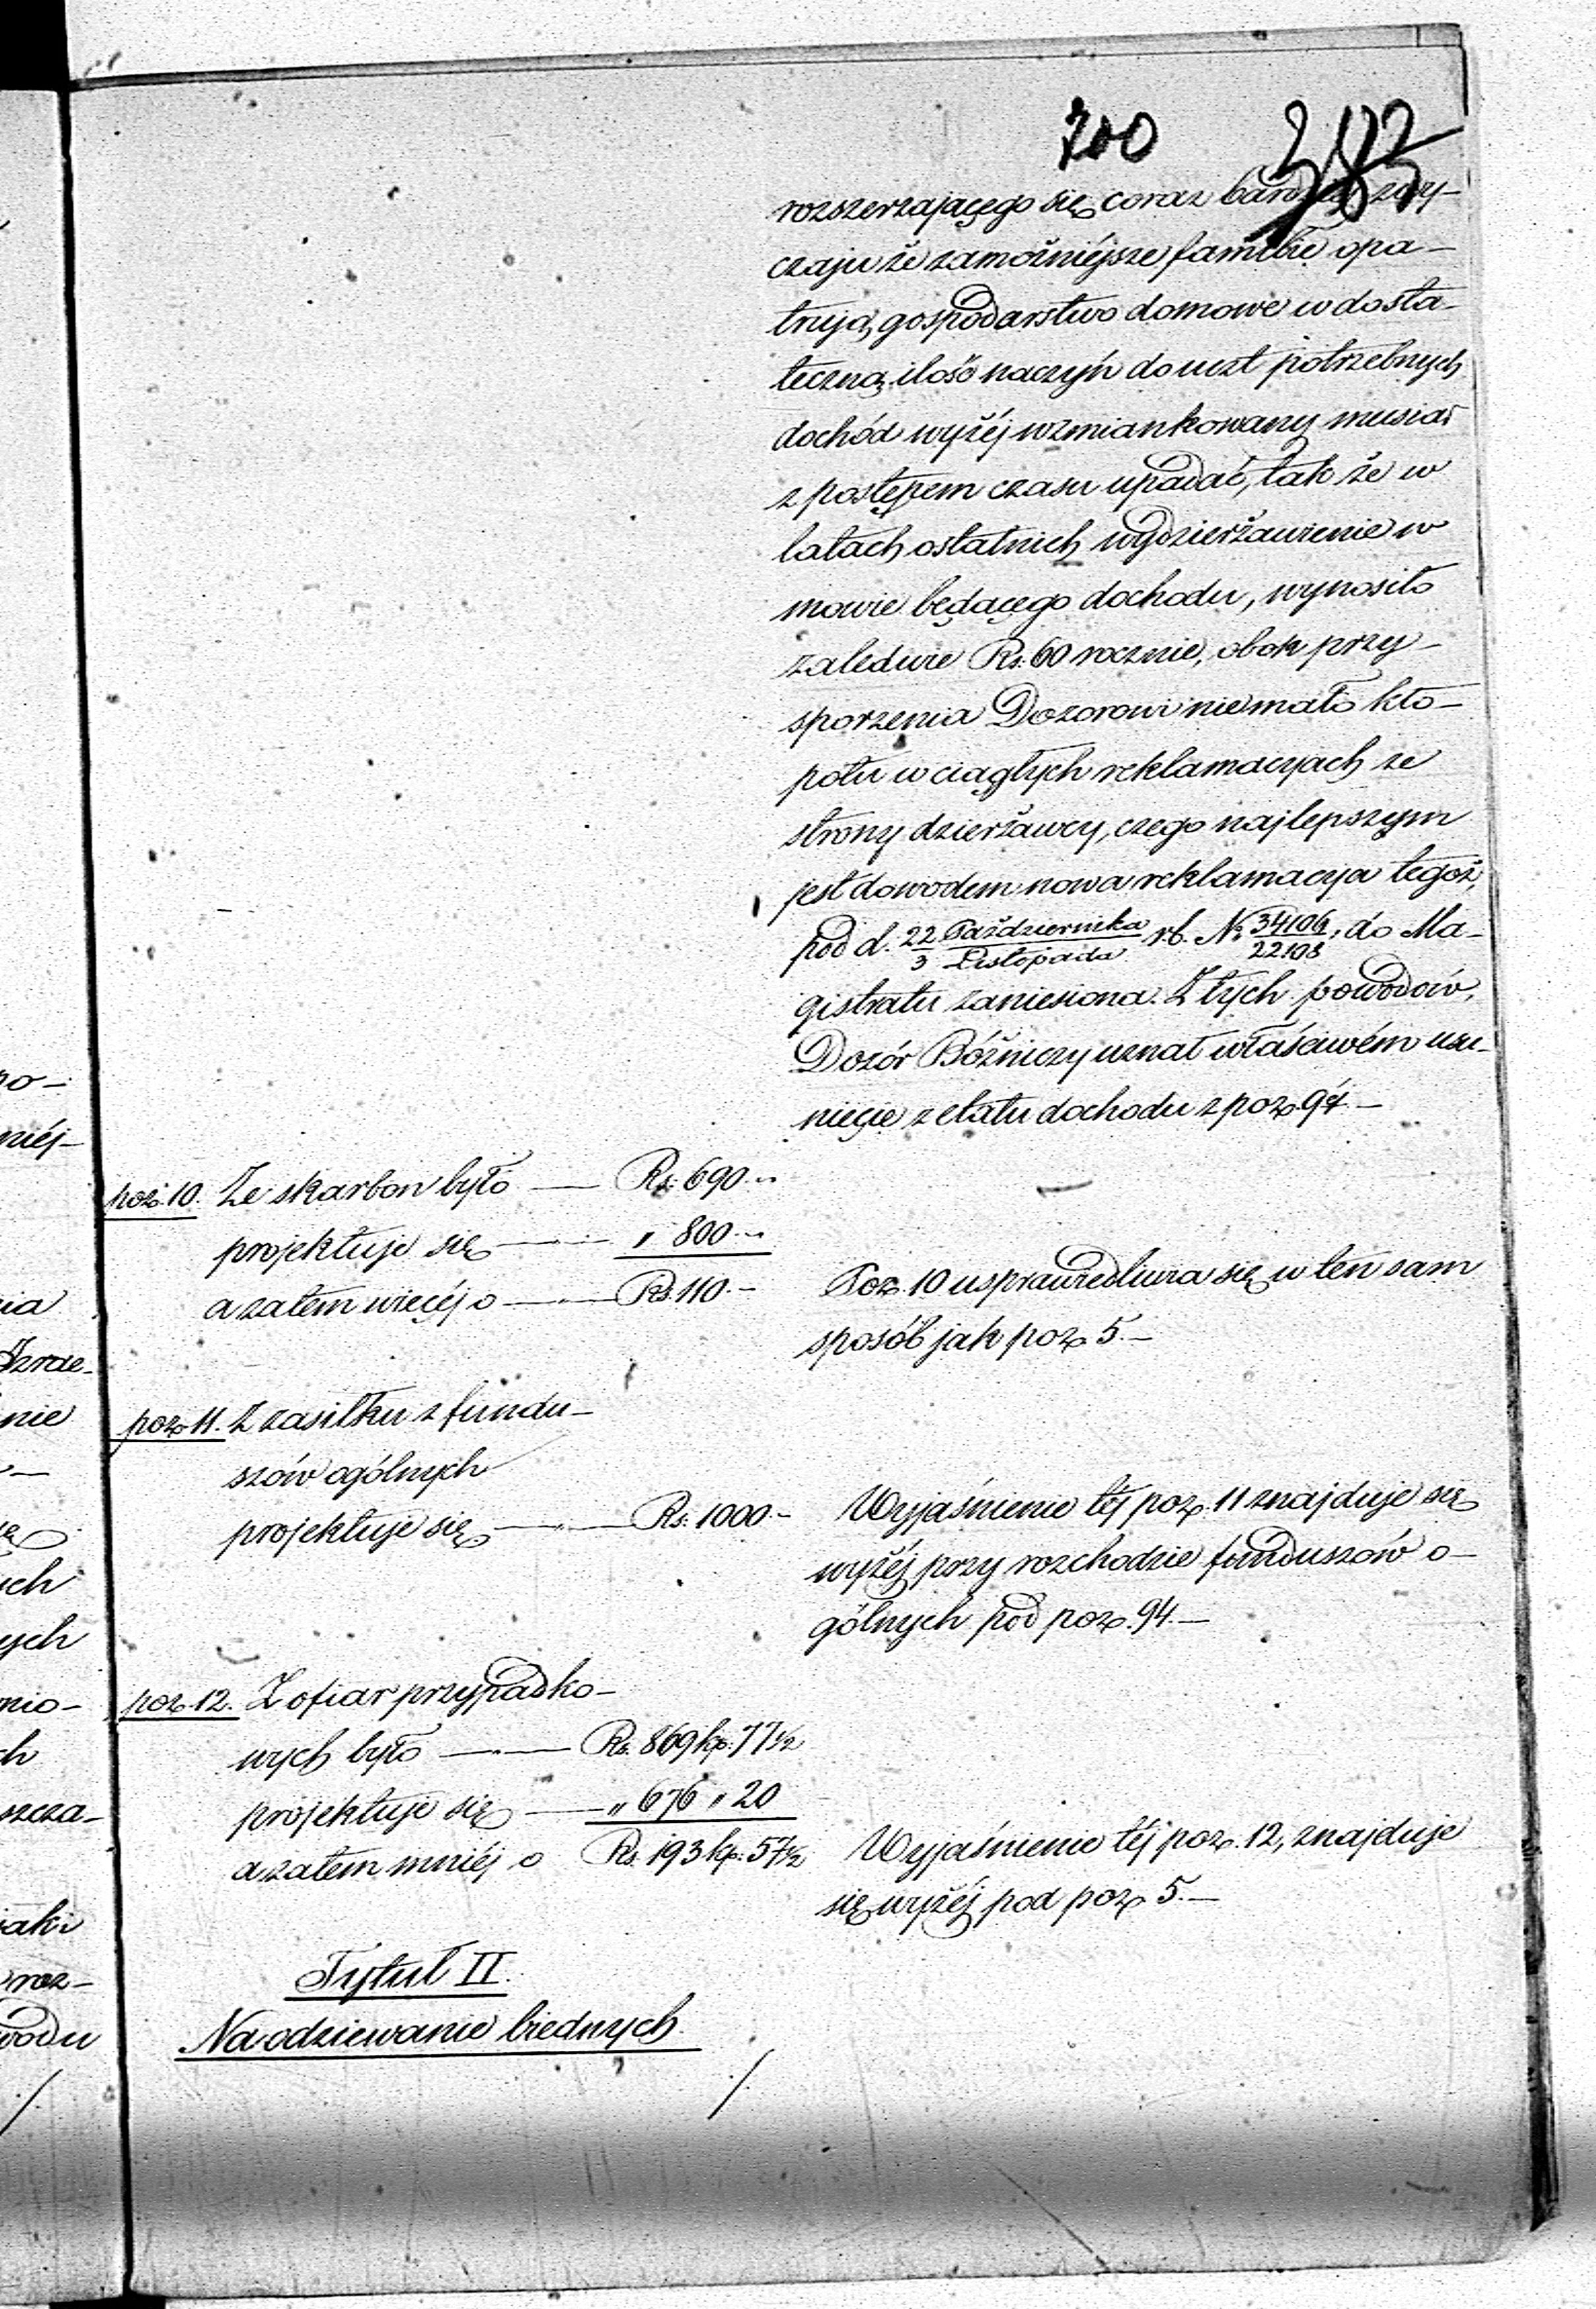 700
rozszerzającego się coraz bardziej zwy-
czaju że zamożniéjsze familie opa-
trują gospodarstwo domowe w dosta-
teczną ilość naczyń do uczt potrzebnych
dochód wyżéj wzmiankowany musiał
z postępem czasu upadać, tak że w
latach ostatnich wydzierżawienie w
mowie będącego dochodu, wynosiło
zaledwie Rs: 60 rocznie, obok przy-
sporzenia Dozorowi niemało kło-
potu w ciągłych reklamacyach ze
strony dzierżawcy, czego najlepszym
jest dowodem nowa reklamacya tegoż,
pod d. 22 Października / 3 Listopada r.b. № 34106/22108, do Ma-
gistratu zaniesiona. Z tych powodów,
Dozór Bóżniczy uznał właściwém usu-
nięcie z etatu dochodu z poz. 9éj. -
poz. 10. Ze skarbon było — Rs: 690 "
projektuje się — " 800 "
a zatem więcéj o — Rs. 110. -
Poz. 10 usprawiedliwia się w ten sam
sposób jak poz. 5. -
poz. 11. Z zasiłku z fundu-
szów ogólnych
projektuje się — Rs: 1000 -
Wyjaśnienie téj poz. 11 znajduje się
wyżéj przy rozchodzie funduszów o-
gólnych pod poz. 94. -
poz. 12. Z ofiar przypadko-
wych było — Rs. 869 kp. 77½
projektuje się — " 676 " 20
a zatem mniéj o Rs. 193 kp. 57½
Wyjaśnienie téj poz. 12, znajduje
się wyżéj pod poz. 5. -
Tytuł II.
Na odziewanie biednych
./.